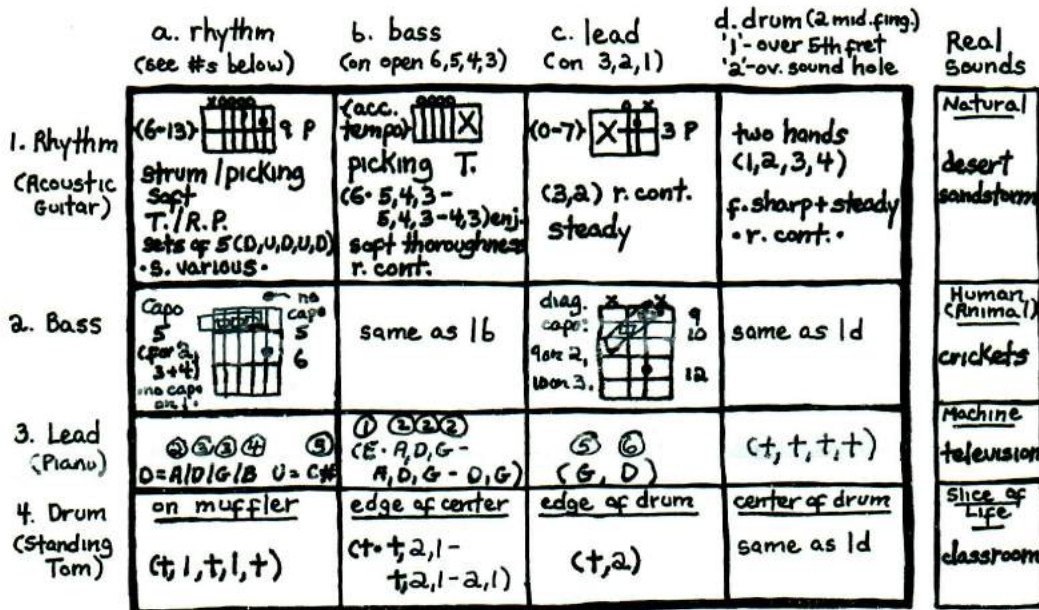 a. rhythm
(see #s below)
b. bass
(on open 6,5,4,3)
c. lead
(on 3,2,1)
d. drum (2 mid. fing.)
'1'-over 5th fret
'2'-ov. sound hole
Real
Sounds
1. Rhythm
(Acoustic
Guitar)
xoooo
(6-13) 9 P
strum/picking
soft
T./R.P.
sets of 5(D,U,D,U,D)
• s. various •
(acc.
tempo)
oooo
X
picking T.
(6• 5,4,3-
5,4,3-4,3)enj.
soft thoroughness
r. cont.
o x
(0-7) X 3 P
(3,2) r. cont.
steady
two hands
(1,2,3,4)
f. sharp + steady
• r. cont. •
Natural
desert
sandstorm
2. Bass
Capo
5
(for 2,
3+4)
no capo
on 1.
no
capo
5
6
same as 1b
diag.
capo:
9 on 2,
10 on 3.
x x
9
10
12
same as 1d
Human
(Animal)
crickets
3. Lead
(Piano)
② ③ ③ ④ ⑤
D=A/D/G/B U=C#
① ② ② ②
(E• A,D,G-
A,D,G-D,G)
⑤ ⑥
(G, D)
(t, t, t, t)
Machine
television
4. Drum
(Standing
Tom)
on muffler
(t,1,t,1,t)
edge of center
(t• t,2,1-
t,2,1-2,1)
edge of drum
(t,2)
center of drum
same as 1d
Slice of
Life
classroom